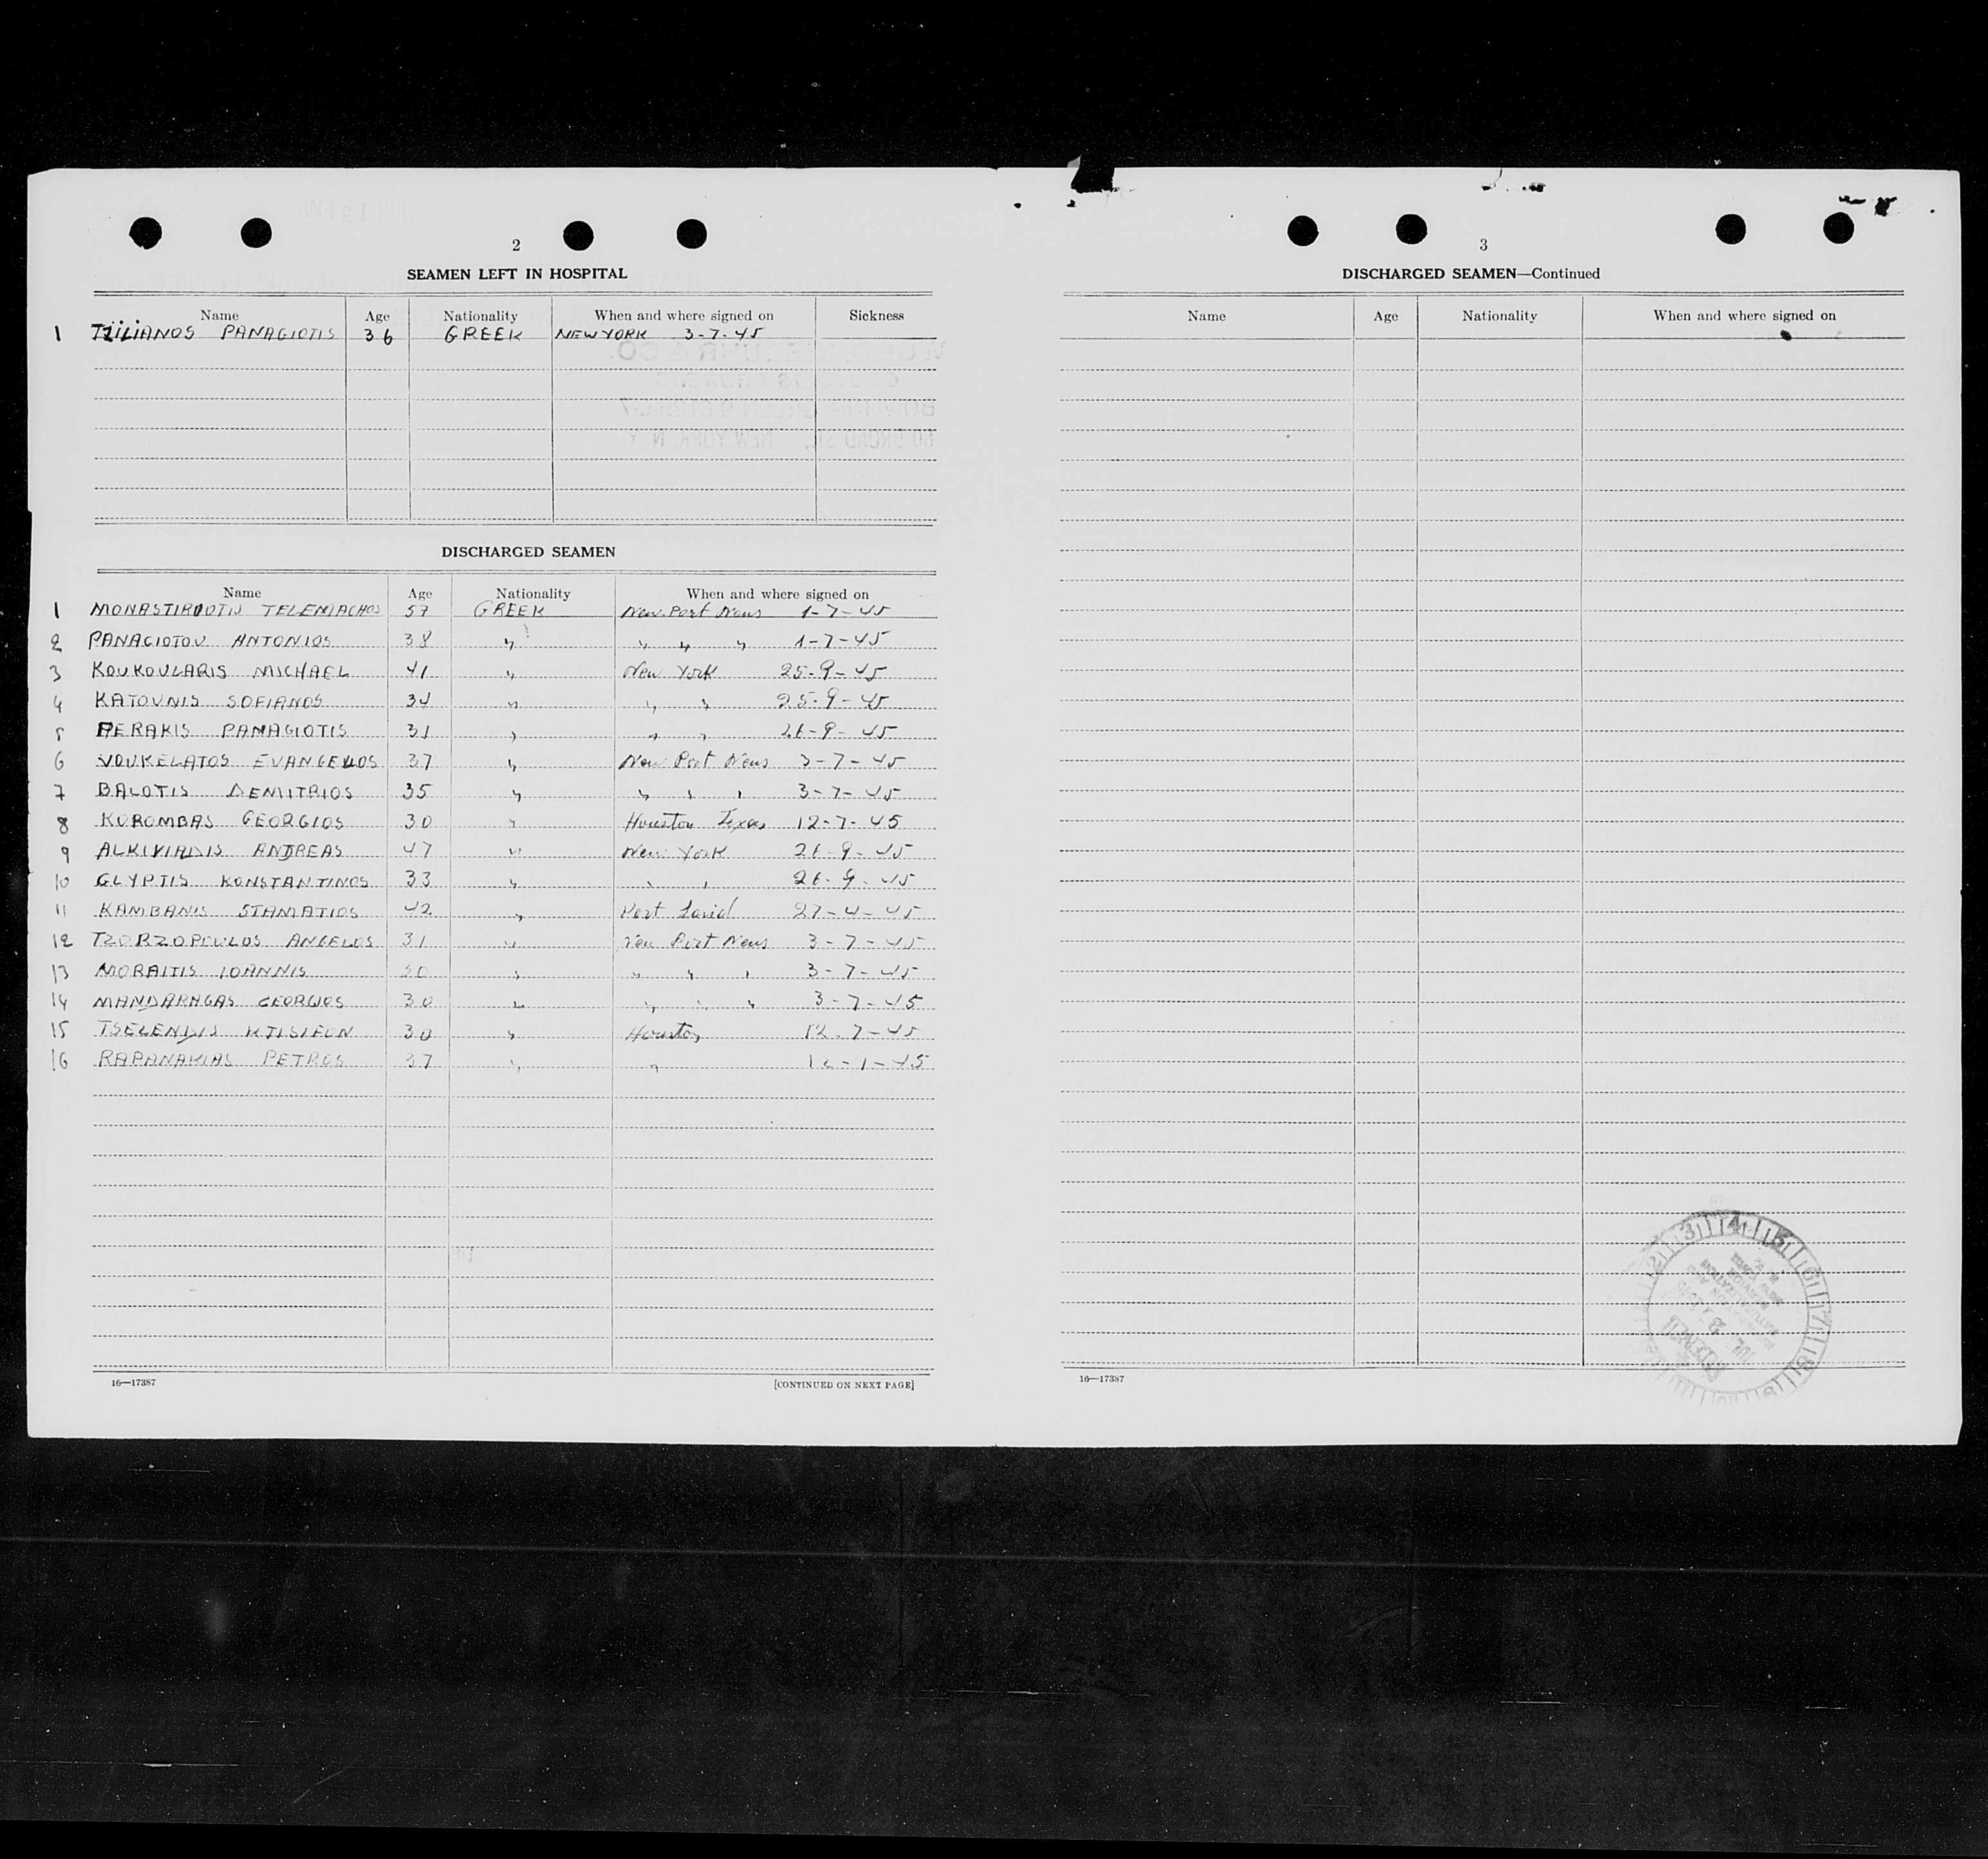 2
SEAMEN LEFT IN HOSPITAL
Name Age Nationality When and where signed on Sickness
1 PANAGIOTIS 36 GREEK NEW YORK 3-7-45
DISCHARGED SEAMEN
Name Age Nationality When and where signed on
1 TELEMACHOS 57 GREEK New Port News 1-7-45
2 PANAGIOTOU ANTONIOS 38 " " " " 1-7-45
3 KOUKOULARIS MICHAEL 41 " New York 25-9-45
4 KATOUNIS SOFIANOS 34 " " " 25-9-45
5 PERAKIS PANAGIOTIS 31 " " " 26-9-45
6 VOUKELATOS EVANGELLOS 37 " New Port News 3-7-45
7 BALOTIS DEMITRIOS 35 " " " " 3-7-45
8 KOROMBAS GEORGIOS 30 " Houston Texas 12-7-45
9 ALKIVIADIS ANDREAS 47 " New York 26-9-45
10 GLYPTIS KONSTANTINOS 33 " " " 26-9-45
11 KAMBANIS STAMATIOS 42 " Port Said 27-4-45
12 TZORZOPOULOS ANGELOS 31 " New Port News 3-7-45
13 MORAITIS IOANNIS " " " " 3-7-45
14 MANDARAGAS GEORGIOS 30 " " " " 3-7-45
15 TSELENDIS KTISIFON 30 " Houston 12-7-45
16 RAPANAKIAS PETROS 37 " "
16—17387 [CONTINUED ON NEXT PAGE]
3
DISCHARGED SEAMEN—Continued
Name Age Nationality When and where signed on
16—17387